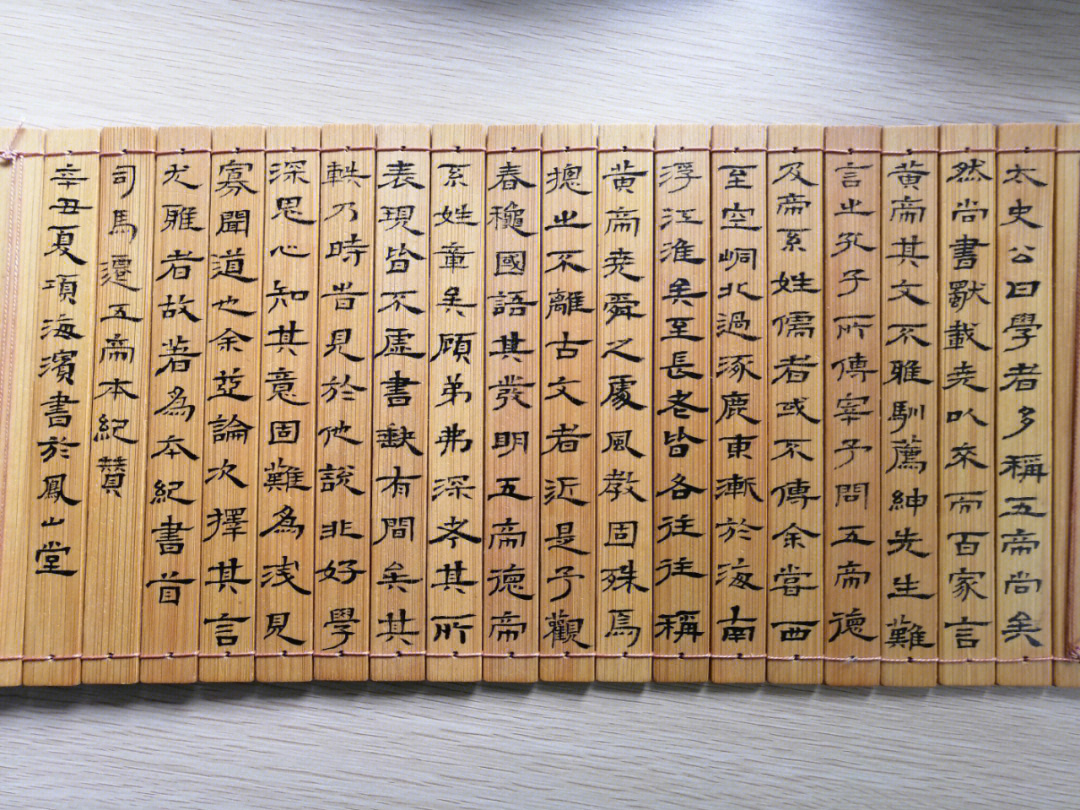 太史公曰學者多稱五帝尚矣
然尚書獨載堯以來而百家言
黄帝其文不雅馴薦紳先生難
言之孔子所傳宰予問五帝德
及帝系姓儒者或不傳余嘗西
至空峒北過涿鹿東漸於海南
浮江淮矣至長老皆各往往稱
黄帝堯舜之處風教固殊焉
摠之不離古文者近是予觀
春秋國語其發明五帝德帝
系姓章矣顧弟弗深考其所
表現皆不虛書缺有間矣其
軼乃時旹見於他說非好學
深思心知其意固難為淺見
寡聞道也余並論次擇其言
尤雅者故著為本紀書首
司馬遷五帝本紀贊
辛丑夏項海濱書於鳳山堂